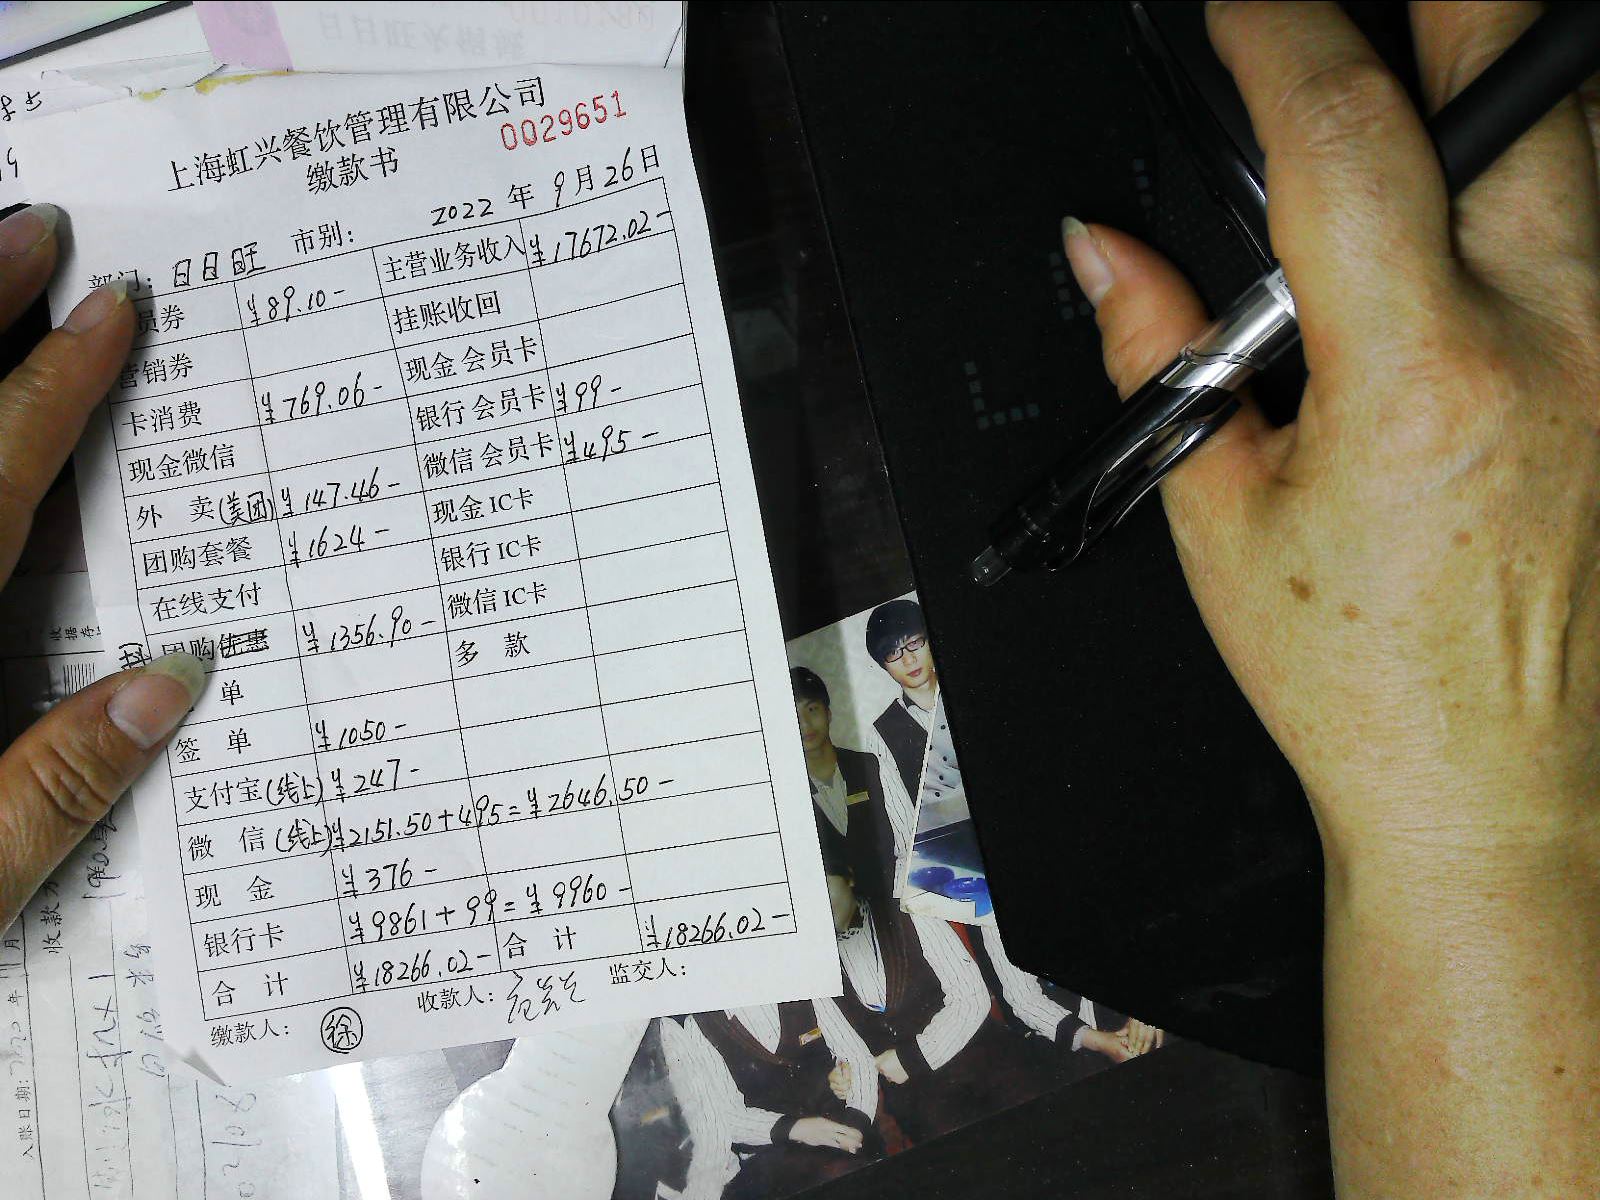 上海虹兴餐饮管理有限公司
0029651
缴款书
2022 年 9 月 26 日
部门: 日日旺 市别:
员券 ¥89.10- 主营业务收入 ¥17672.02-
营销券 挂账收回
卡消费 ¥769.06- 现金会员卡
现金微信 银行会员卡 ¥99-
外 卖(美团) ¥147.46- 微信会员卡 ¥495-
团购套餐 ¥1624- 现金IC卡
在线支付 银行IC卡
抖 团购优惠 ¥1356.90- 微信IC卡
单 多 款
签 单 ¥1050-
支付宝(线上) ¥247-
微 信(线上) ¥2151.50+495=¥2646.50-
现 金 ¥376-
银行卡 ¥9861+99=¥9960-
合 计 ¥18266.02- 合 计 ¥18266.02-
缴款人: 徐 收款人: 监交人:
收据存
收款方
入账日期: